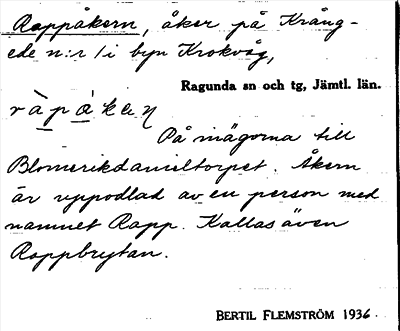 Rappåkern, åker på Krång-
ede n:r 1 i byn Krokvåg,
Ragunda sn och tg, Jämtl. län.
På mågorna till
Blomerikdanieltorpet. Åkern
är uppodlad av en person med
namnet Rapp. Kallas även
Rappbrytan.
BERTIL FLEMSTRÖM 1936